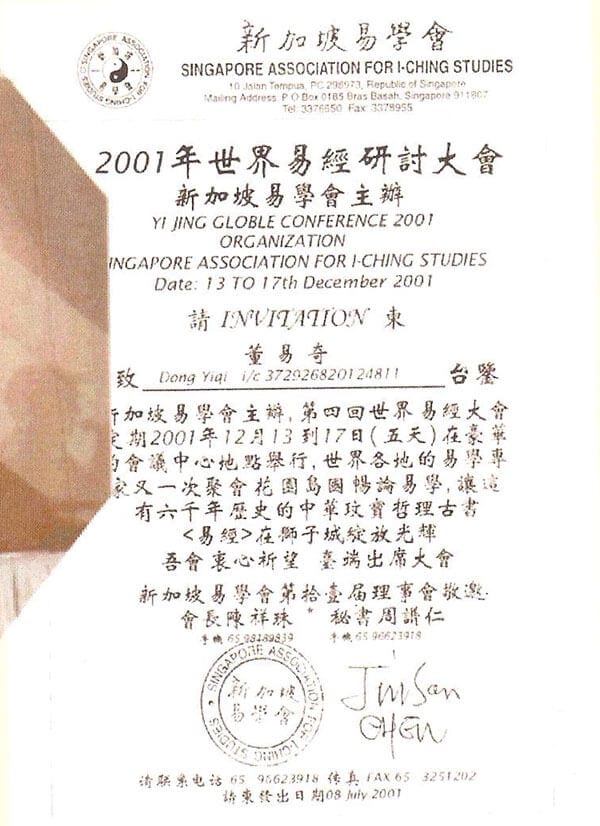 新加坡易學會
SINGAPORE ASSOCIATION FOR I-CHING STUDIES
10 Jalan Tempua, PC 298973, Republic of Singapore
Mailing Address P O Box 0185 Bras Basah, Singapore 911807
Tel: 3376650 Fax: 3378955
SINGAPORE ASSOCIATION FOR I-CHING STUDIES
新加坡
易學會
2001年世界易經研討大會
新加坡易學會主辦
YI JING GLOBLE CONFERENCE 2001
ORGANIZATION
INGAPORE ASSOCIATION FOR I-CHING STUDIES
Date: 13 TO 17th December 2001
請 INVITATION 柬
董易奇
致 Dong Yiqi i/c 372926820124811 台鑒
新加坡易學會主辦,第四回世界易經大會
定期2001年12月13到17日(五天)在豪華
的會議中心地點舉行,世界各地的易學專
家又一次聚會花園島國暢論易學,讓這
有六千年歷史的中華玟寶哲理古書
<易經>在獅子城綻放光輝
吾會衷心祈望 臺端出席大會
新加坡易學會第拾壹届理事會敬邀
會長陳祥珠 * 秘書周譜仁
手機 65 98189839 手機 65 96623918
SINGAPORE ASSOCIATION FOR I-CHING STUDIES
新加坡
易學會
JinSan
CHEN
请联系电话 65 96623918 传真 FAX 65 3251202
請柬發出日期08 July 2001